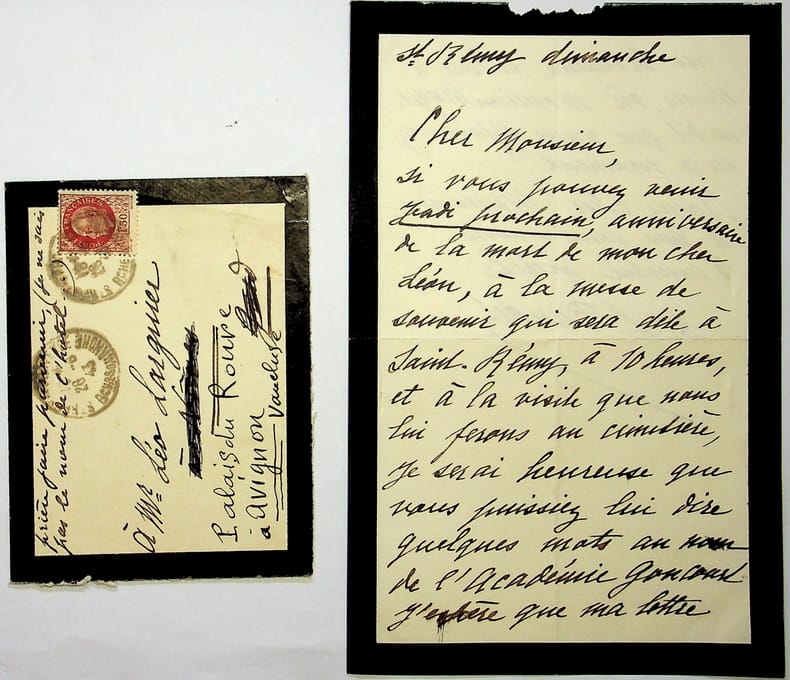 prière faire parvenir, (je ne sais
pas le nom de l'hôtel.)
POSTES FRANÇAISES
1F50
À Mr. Léo Larguier
Palais du Roure
à Avignon
Vaucluse
St. Rémy dimanche
Cher Monsieur,
si vous pouvez venir
Jeudi prochain, anniversaire
de la mort de mon cher
Léon, à la messe de
souvenir qui sera dite à
Saint-Rémy, à 10 heures,
et à la visite que nous
lui ferons au cimetière,
je serai heureuse que
vous puissiez lui dire
quelques mots au nom
de l'Académie Goncourt
J'espère que ma lettre